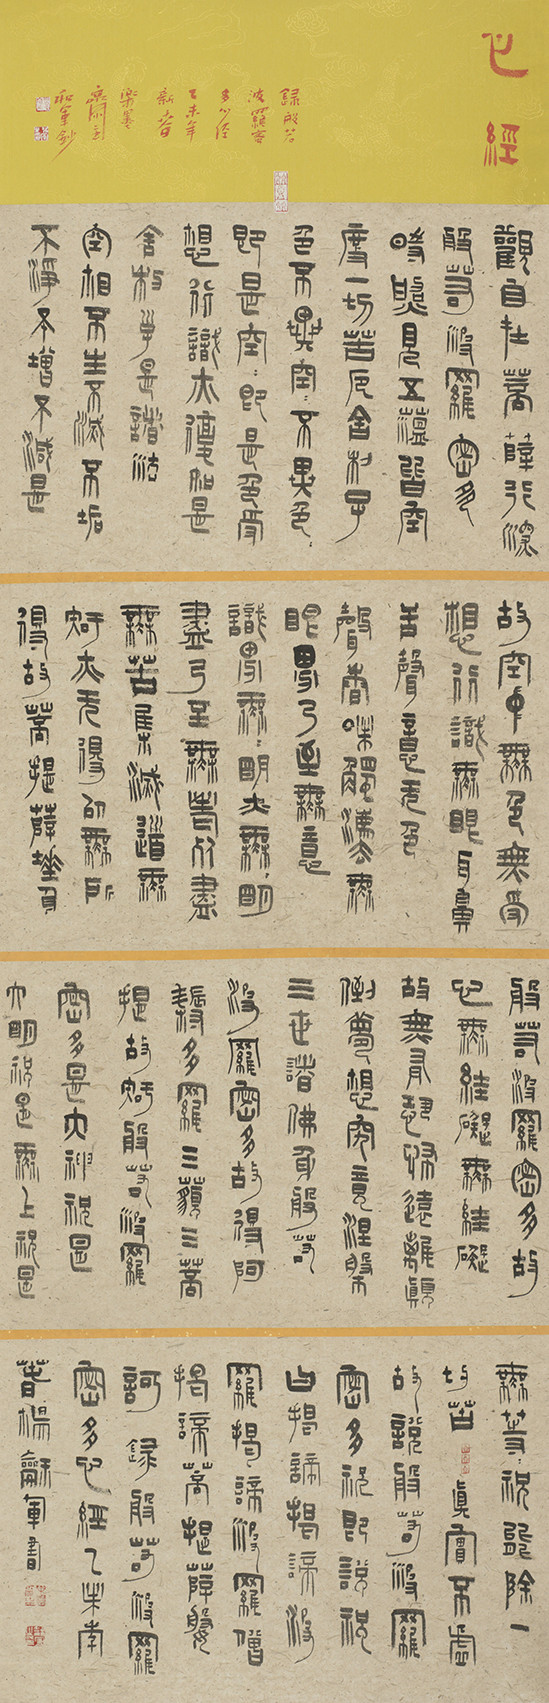 心經
錄般若
波羅蜜
多心經
乙未年
新春
樂墨
齋主
和軍鈔
觀自在菩薩行深
般若波羅密多
時照見五蘊皆空
度一切苦厄舍利子
色不異空〻不異色〻
即是空〻即是色受
想行識亦復如是
舍利子是諸法
空相不生不滅不垢
不淨不增不減是
故空中無色無受
想行識無眼耳鼻
舌聲意无色
聲香味觸法無
眼界乃至無意
識界無〻明亦無明
盡乃至無老死盡
無苦集滅道無
智亦无得以無所
得故菩提薩埵依
般若波羅密多故
心無絓礙無絓礙
故無有恐怖遠離顛
倒夢想究竟涅槃
三世諸佛依般若
波羅密多故得阿
耨多羅三藐三菩
提故知般若波羅
密多是大神咒是
大明咒是無上咒是
無等咒能除一
切苦真實不虛
故說般若波羅
密多咒即說咒
曰揭諦揭諦波
羅揭諦波羅僧
揭諦菩提薩婆
訶 錄般若波羅
密多心經乙未年
春楊龢軍書